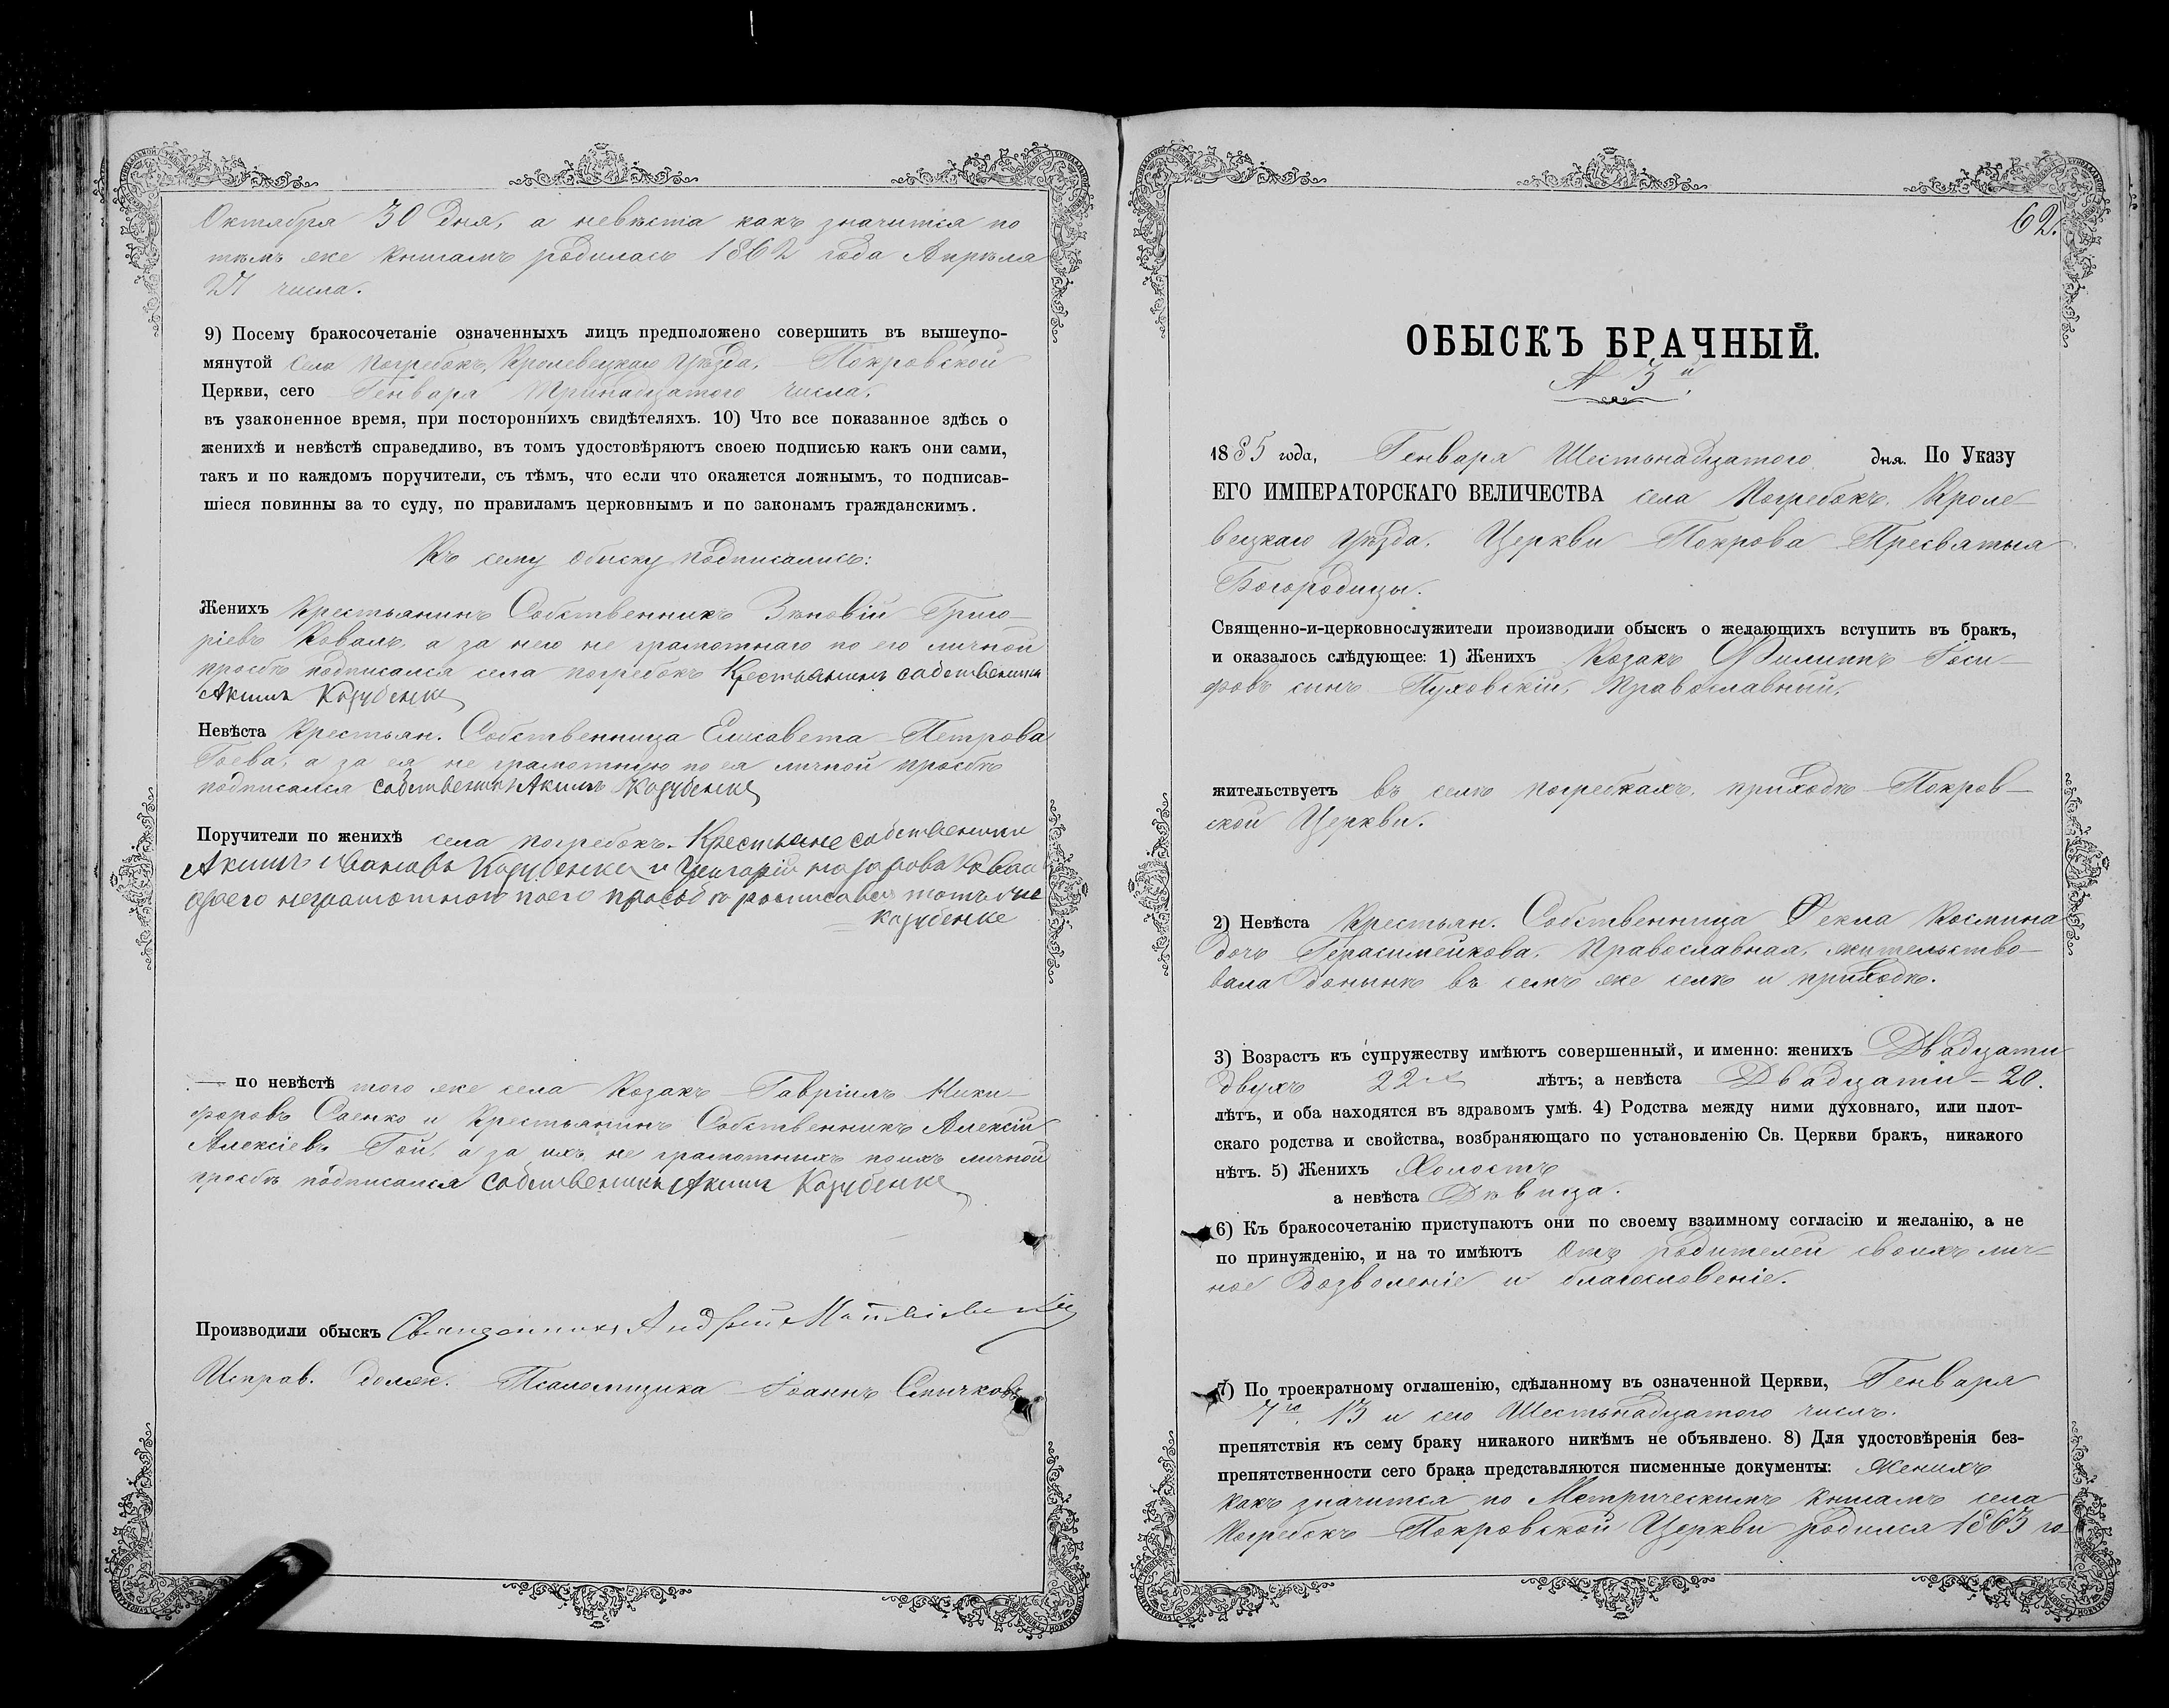 Октября 30 дня, а невѣста какъ значится по
тѣмъ же книгамъ родилась 1862 года Апрѣля
числа.
9) Посему бракосочетаніе означенныхъ лицъ предположено совершить въ вышеупо-
мянутой села Погребокъ, Кролевецкаго Уѣзда, Покровской
Церкви, сего Генваря Тринадцатого числа,
въ узаконенное время, при постороннихъ свидѣтеляхъ. 10) Что все показанное здѣсь о
женихѣ и невѣстѣ справедливо, въ томъ удостовѣряютъ своею подписью какъ они сами,
такъ и по каждомъ поручители, съ тѣмъ, что если что окажется ложнымъ, то подписав-
шіеся повинны за то суду, по правиламъ церковнымъ и по законамъ гражданскимъ.
Къ сему обыску подписались:
Женихъ Крестьянинъ Собственникъ Зѣновій Григо-
ріевъ Коваль, а за него не грамотнаго по его личной
просьбѣ подписался села погребокъ Крестьянинъ собственникъ
Акимъ Козубенко
Невѣста Крестьян. Собственница Елисавета Петрова
Гоева, а за ея не грамотную по ея личной просьбѣ
подписался собственникъ Акимъ Козубенко
Поручители по женихѣ села погребокъ. Крестьяне собственики
Акимъ Ивановъ Козубенко и Григорій Назаровъ Коваль
азаего неграмотного поего просьбѣ росписався тотъ же
Козубенко
— по невѣстѣ того же села Козакъ Гавріилъ Ники-
форовъ Саенко и Крестьянинъ Собственникъ Алексій
Алексіевъ Гой, а за ихъ не грамотныхъ поихъ личной
просьбѣ подписался собственикъ Акимъ Козубенко
Производили обыскъ Священникъ Андрей
Исправ. долж. Псаломщика Іоаннъ
62.
ОБЫСКЪ БРАЧНЫЙ.
№ 3й
1885 года, Генваря Шестьнадцатого дня. По Указу
ЕГО ИМПЕРАТОРСКАГО ВЕЛИЧЕСТВА села Погребокъ, Кроле-
вецкаго Уѣзда, Церкви Покрова Пресвятыя
Богородицы.
Священно-и-церковнослужители производили обыскъ о желающихъ вступить въ бракъ,
и оказалось слѣдующее: 1) Женихъ Козакъ Филиппъ Іоси-
фовъ сынъ Пуховскій, Православный,
жительствуетъ въ селѣ погребкахъ, приходѣ Покров-
ской Церкви.
2) Невѣста Крестьян. Собственница Фекла Космина
дочь Герасимейкова, Православная, жительство-
вала донынѣ въ семъ же селѣ и приходѣ.
3) Возрастъ къ супружеству имѣютъ совершенный, и именно: женихъ Двадцати
двухъ 22х лѣтъ; а невѣста Двадцати – 20.
лѣтъ, и оба находятся въ здравомъ умѣ. 4) Родства между ними духовнаго, или плот-
скаго родства и свойства, возбраняющаго по установленію Св. Церкви бракъ, никакого
нѣтъ. 5) Женихъ Холостъ
а невѣста Дѣвица.
6) Къ бракосочетанію приступаютъ они по своему взаимному согласію и желанію, а не
по принужденію, и на то имѣютъ Отъ родителей своихъ лич-
ное дозволеніе и благословеніе.
7) По троекратному оглашенію, сдѣланному въ означенной Церкви, Генваря
7го, 13 и сего Шестьнадцатого числъ.
препятствія къ сему браку никакого никѣмъ не объявлено. 8) Для удостовѣренія без-
препятственности сего брака представляются писменные документы: Женихъ
какъ значится по Метрическимъ книгамъ села
Погребокъ Покровской Церкви родился 1863 го